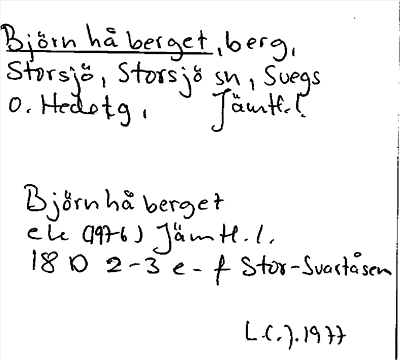 Björnhåberget, berg,
Storsjö, Storsjö sn, Svegs
o. Hedetg, Jämtl.l.
Björnhåberget
ek (1976) Jämtl.l.
18 D 2-3 e-f Stor-Svartåsen
L.C.J. 1977